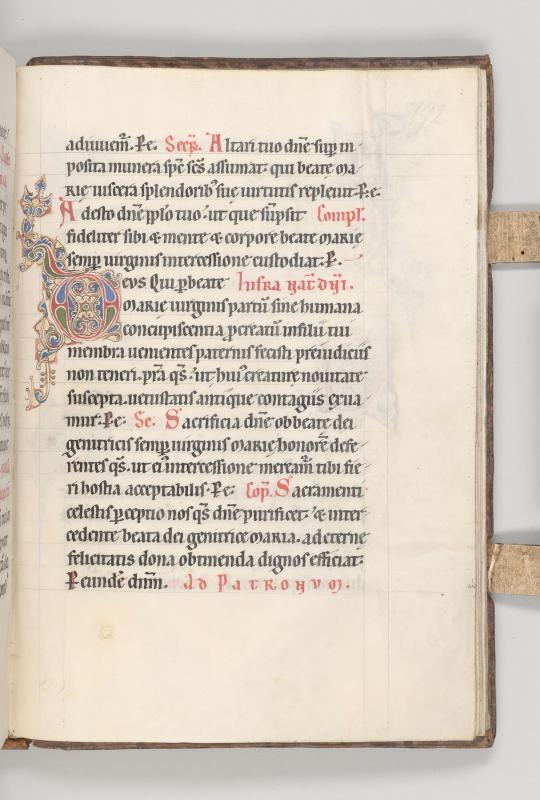 adiuuem̅. Per. Secr̅. Altari tuo dn̅e sup̱ in
posita munera sp̅c sc̅s assumat. qui beate ma
rie uiscera splendorib' sue uirtutis repleuit. Per.
Adesto dn̅e pp̅lo tuo. ut que su̅psit Compl̅.
fideliter sibi & mente & corpore beate marie
semp̱ uirginis intercessione custodiat. P.
Deus qui p̱ beate Infra nat̅ dn̅i.
marie uirginis partu̅ sine humana
concupiscentia p̱creatu̅ in filii tui
membra uenientes paternis fecisti preiudiciis
non teneri. pr̅a qs̅. ut hui' creature nouitate
suscepta. uetustatis antique contagiis exua
mur. Per. Se. Sacrificia dn̅e ob beate dei
genitricis semp̱ uirginis marie honore̅ defe
rentes qs̅. ut ei' intercessione meream̅ tibi fie
ri hostia acceptabilis. Per. Cop̅. Sacramenti
celestis p̱ceptio nos qs̅ dn̅e purificet. & inter
cedente beata dei genitrice maria. ad eterne
felicitatis dona obtinenda dignos efficiat.
P eunde̅ dn̅m. Ad Patronum.